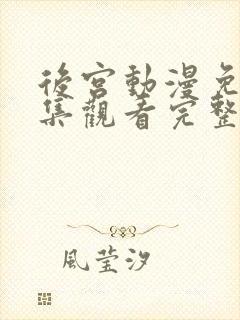 後宮動漫免
集觀看完整
風莹汐